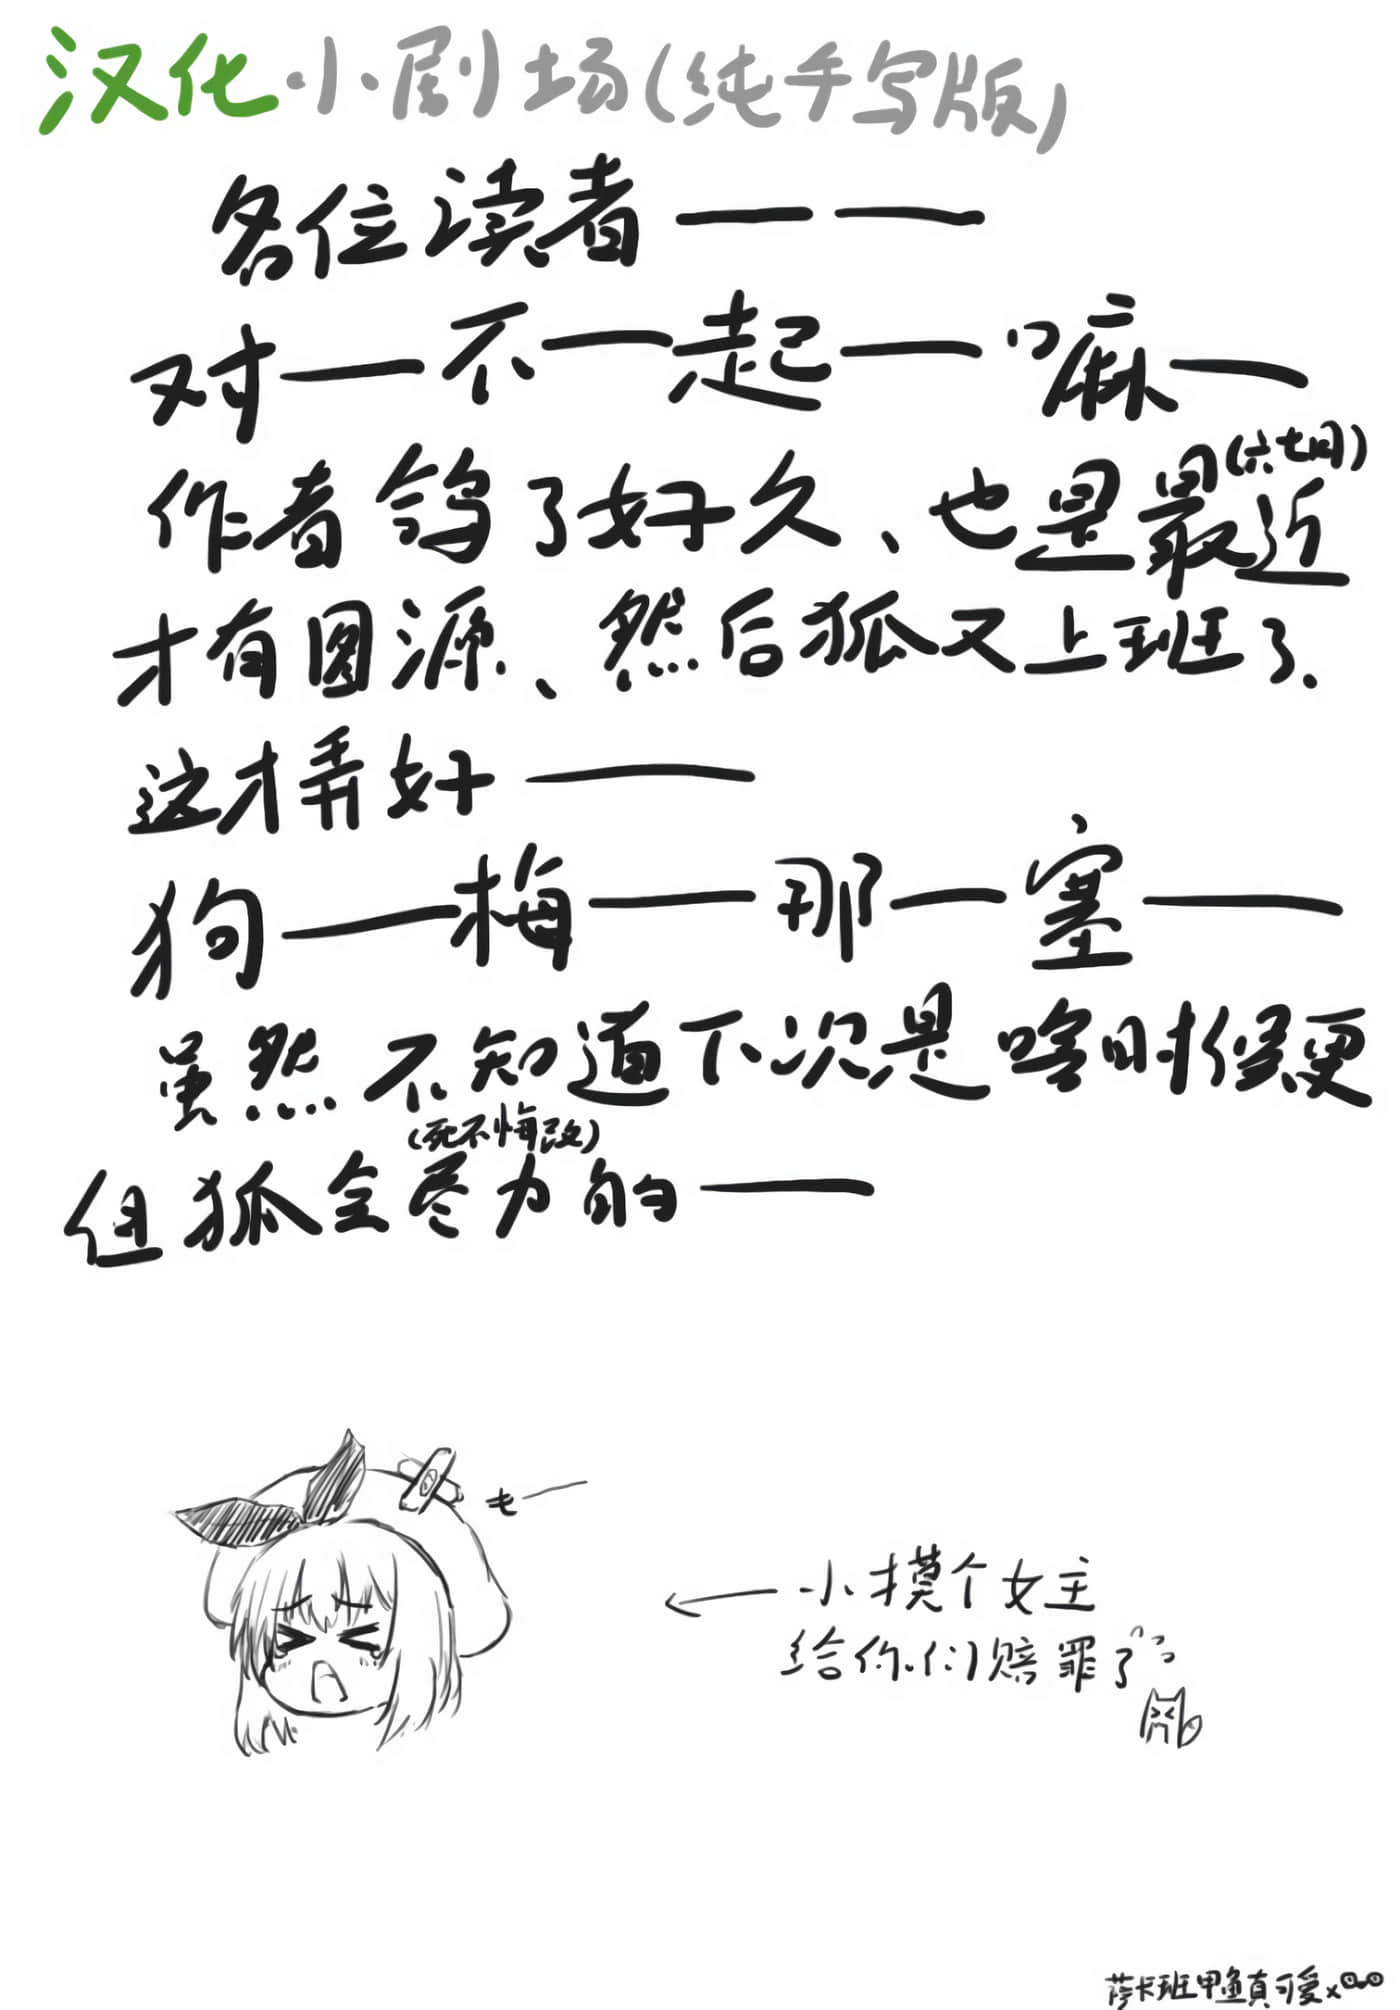 汉化小剧场(纯手写版)
各位读者——
对—不—起—嘛—
作者鸽了好久、也是最近
(六七月)
才有图源、然后狐又上班了.
这才弄好——
狗—梅—那—塞—
虽然不知道下次是啥时候更
(死不悔改)
但狐会尽力的——
←小摸个女主
给你们赔罪了
萨卡班甲鱼真可爱x